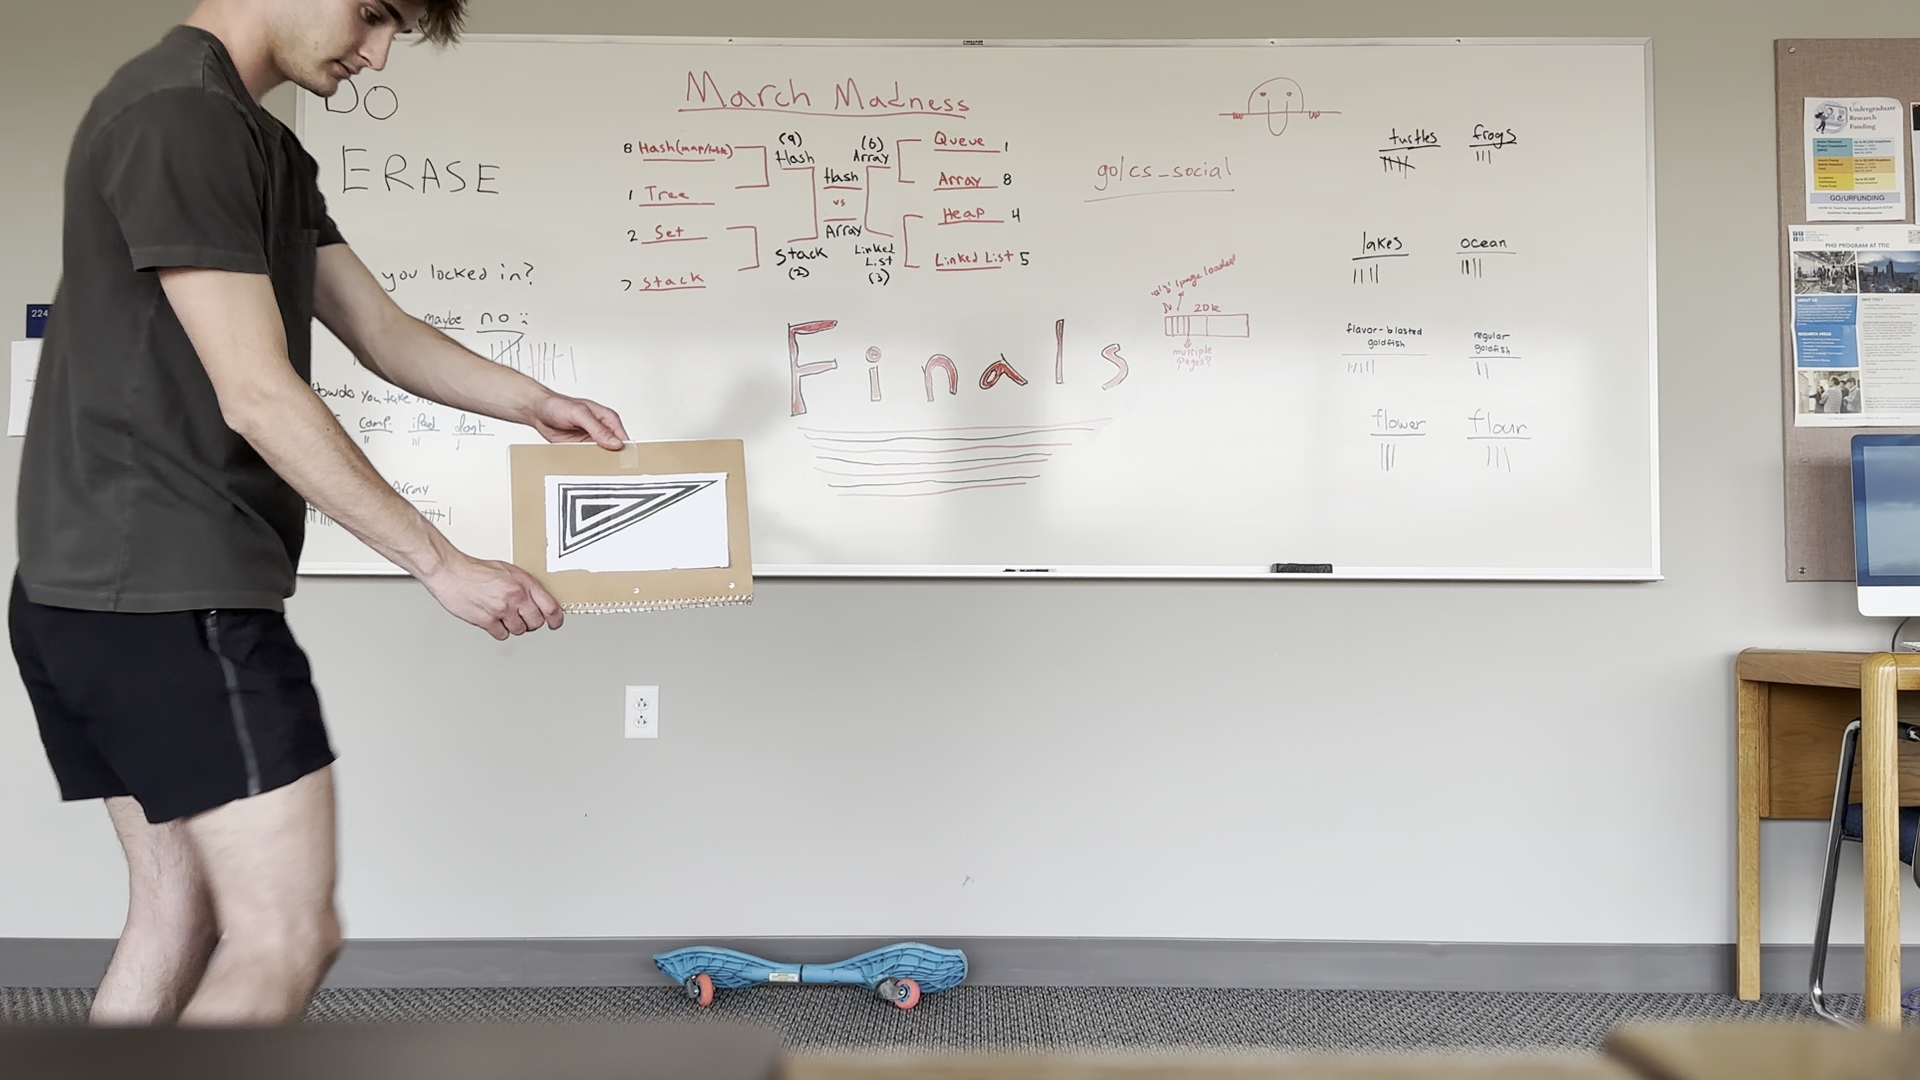 DO
ERASE
you locked in?
maybe no
How do you take
comp. iPad don't
Array
March Madness
8 Hash(map/table)
1 Tree
2 Set
7 Stack
(9)
Hash
Stack
(2)
Hash
vs
Array
(6)
Array
Linked
List
(3)
Queue 1
Array 8
Heap 4
Linked List 5
Finals
go/cs_social
1 page loaded!
20k
multiple
pages?
turtles frogs
lakes ocean
flavor-blasted
goldfish
regular
goldfish
flower flour
224
Undergraduate
Research
Funding
GO/URFUNDING
PHD PROGRAM AT TTIC
ABOUT US
WHY TTIC?
RESEARCH AREAS